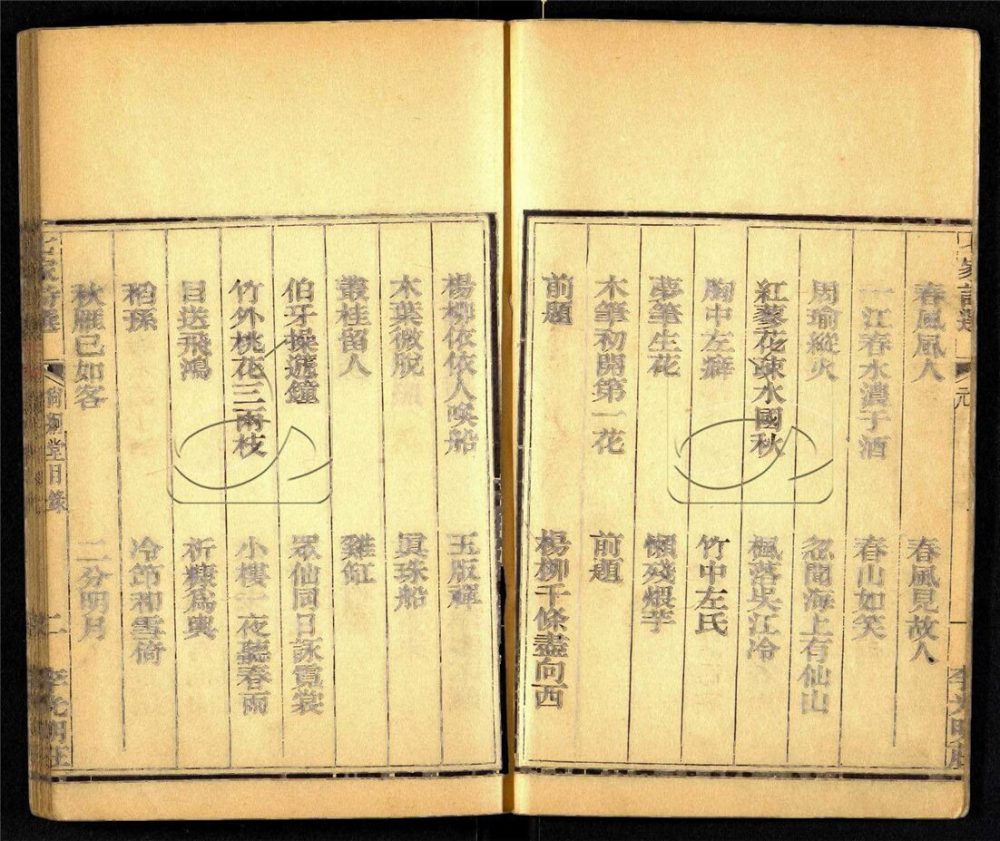 春風風人　春風見故人
一江春水濃于酒　春山如笑
周瑜縱火　忽聞海上有仙山
紅蓼花疎水國秋　楓落吳江冷
胸中左癖　竹中左氏
夢筆生花　懶殘煨芋
木筆初開第一花　前題
前題　楊柳千條盡向西
楊柳依依人喚船　玉版禪
木葉微脫　眞珠船
叢桂留人　雞缸
伯牙操遞鐘　眾仙同日詠霓裳
竹外桃花三兩枝　小樓一夜聽春雨
目送飛鴻　析糠爲輿
稻孫　冷節和雪倚
秋雁已如客　二分明月
七家詩選　尚絅堂目錄　二　李光明莊